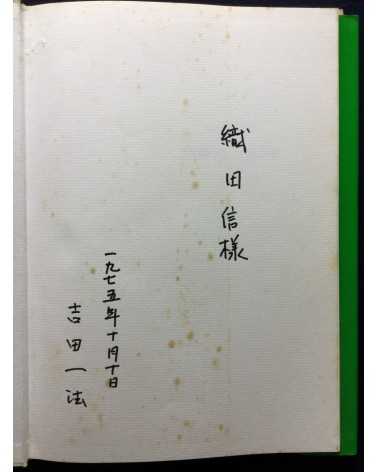 織田信様
一九七五年十月十日
吉田一法